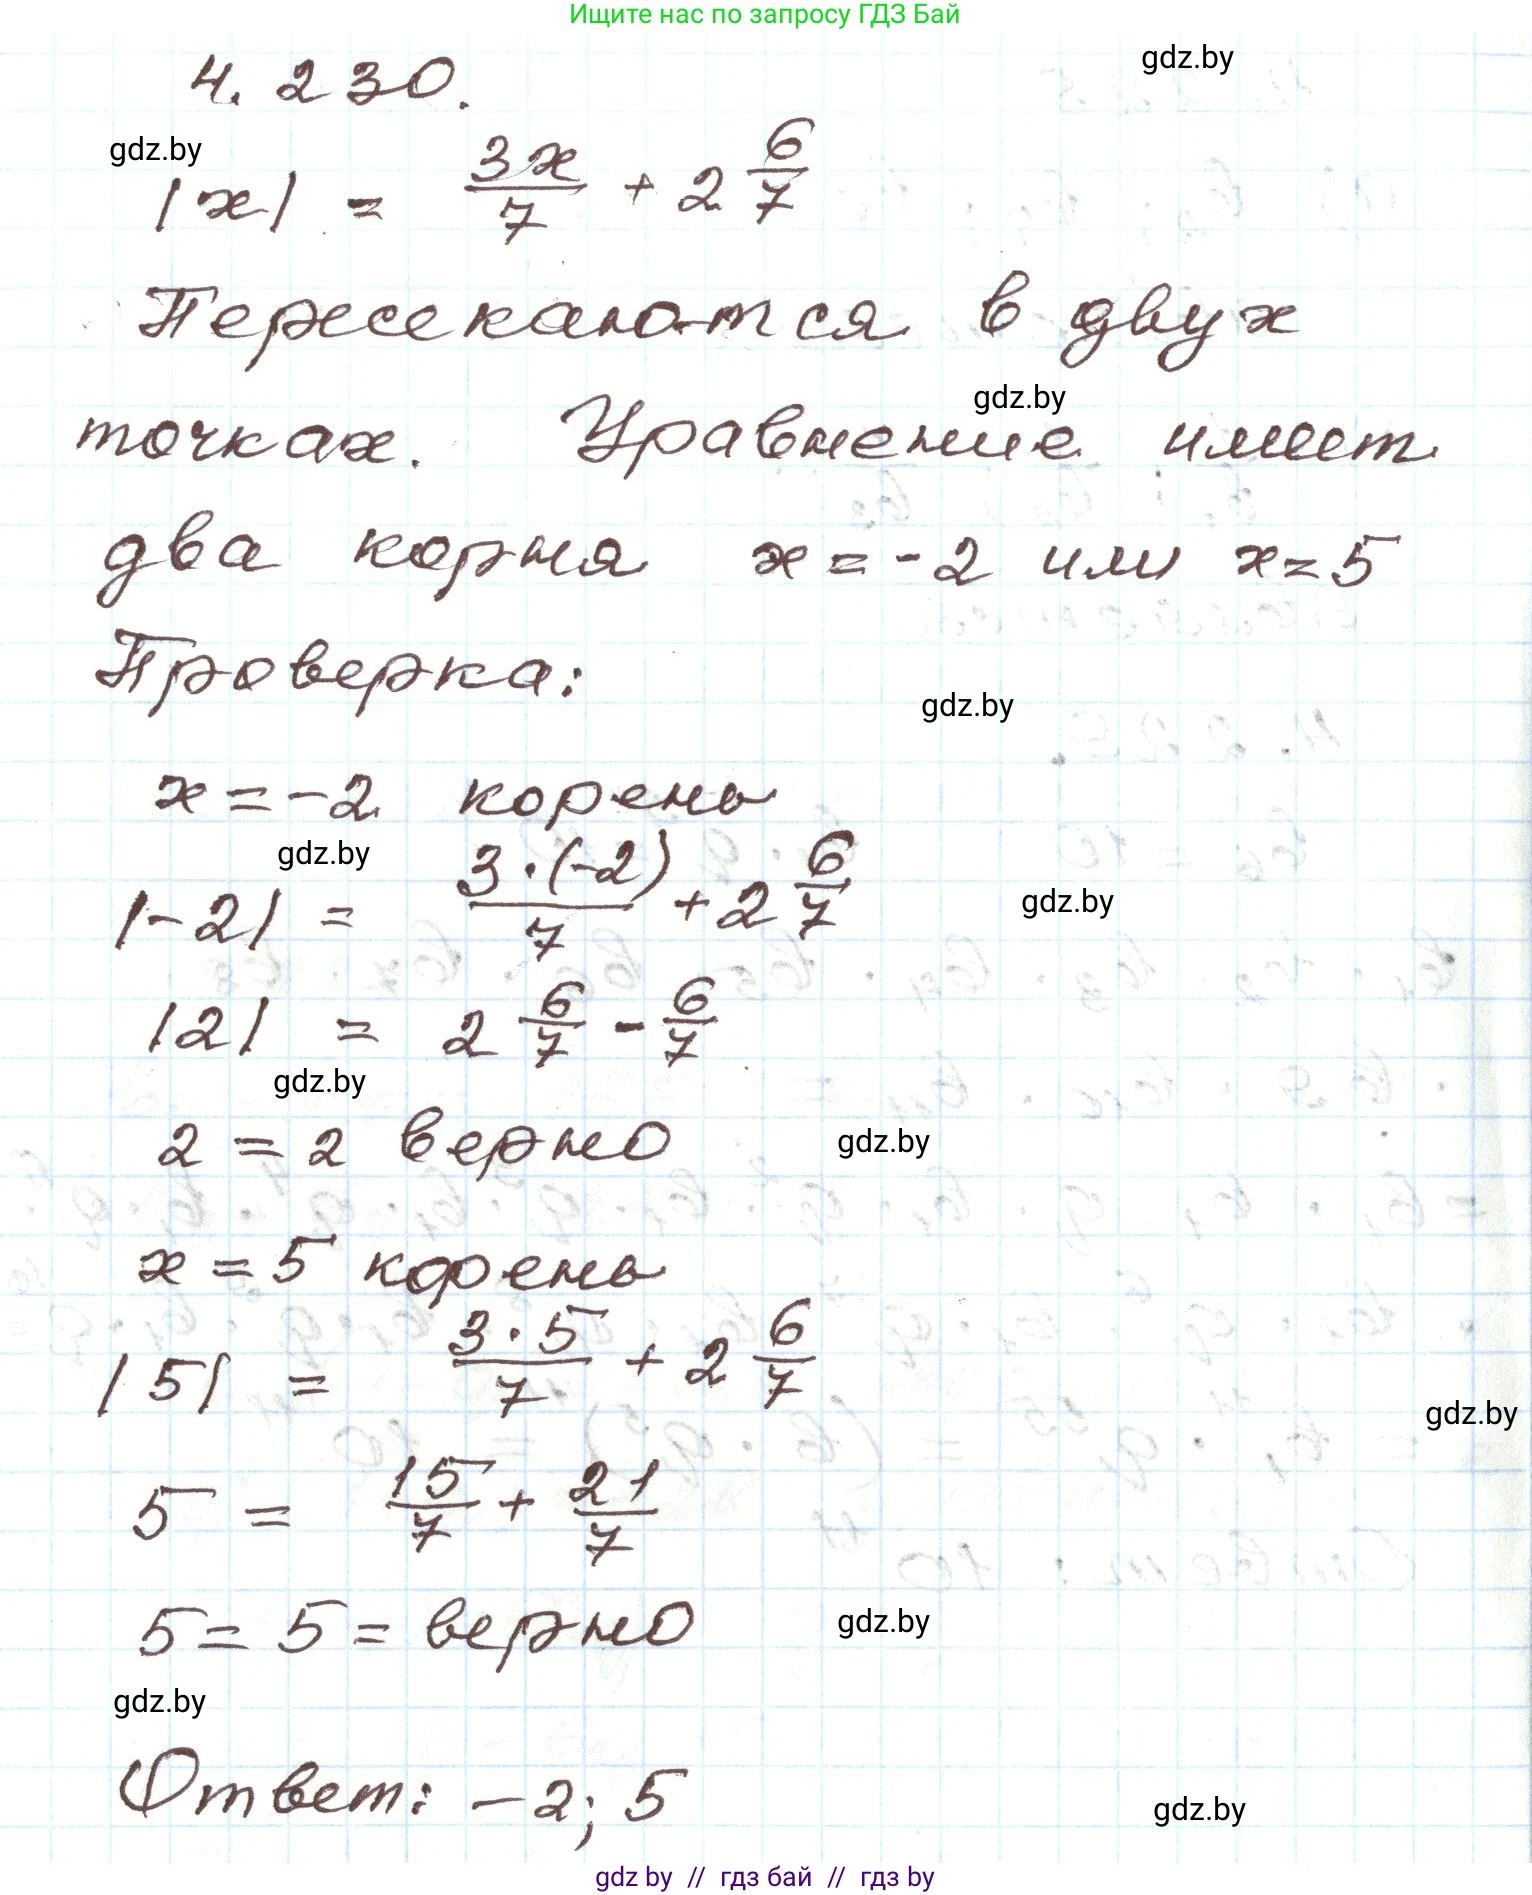 Ищите нас по запросу ГДЗ Бай
gdz.by
4.230.
gdz.by
|x| = 3x/7 + 2 6/7
Пересекаются в двух
gdz.by
точках. Уравнение имеет
два корня x = -2 или x = 5
Проверка:
gdz.by
x = -2 корень
gdz.by
|-2| = 3·(-2)/7 + 2 6/7
gdz.by
|2| = 2 6/7 - 6/7
gdz.by
2 = 2 верно
gdz.by
x = 5 корень
|5| = 3·5/7 + 2 6/7
gdz.by
5 = 15/7 + 21/7
5 = 5 = верно
gdz.by
gdz.by
Ответ: -2; 5
gdz.by
gdz by // гдз бай // гдз by